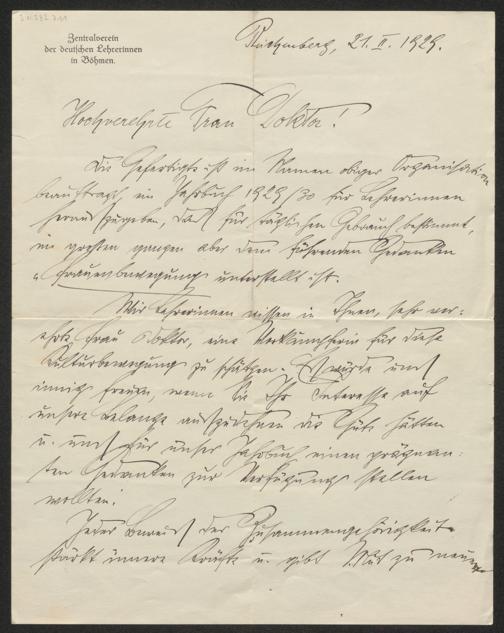 Zentralverein
der deutschen Lehrerinnen
in Böhmen.
21. II. 1929.
Hochverehrte Frau Doktor!
Die Gefertigte ist im Namen obiger Organisation
beauftragt ein Jahrbuch 1929/30 für Lehrerinnen
herauszugeben, das für täglichen Gebrauch bestimmt,
im großen ganzen aber dem führenden Gedanken
"Frauenbewegung" unterstellt ist.
Wir Lehrerinnen wissen in Ihnen, sehr ver=
ehrte Frau Doktor, eine Vorkämpferin für diese
Kulturbewegung zu schätzen. Es würde uns
innig freuen, wenn Sie Ihr Interesse auf
unsere Belange auszudehnen die Güte hätten
u. uns für unser Jahrbuch einen prägnan=
ten Gedanken zur Verfügung stellen
wollten.
Jeder Beweis der Zusammengehörigkeit
stärkt innere Kräfte u. gibt Mut zu neuem